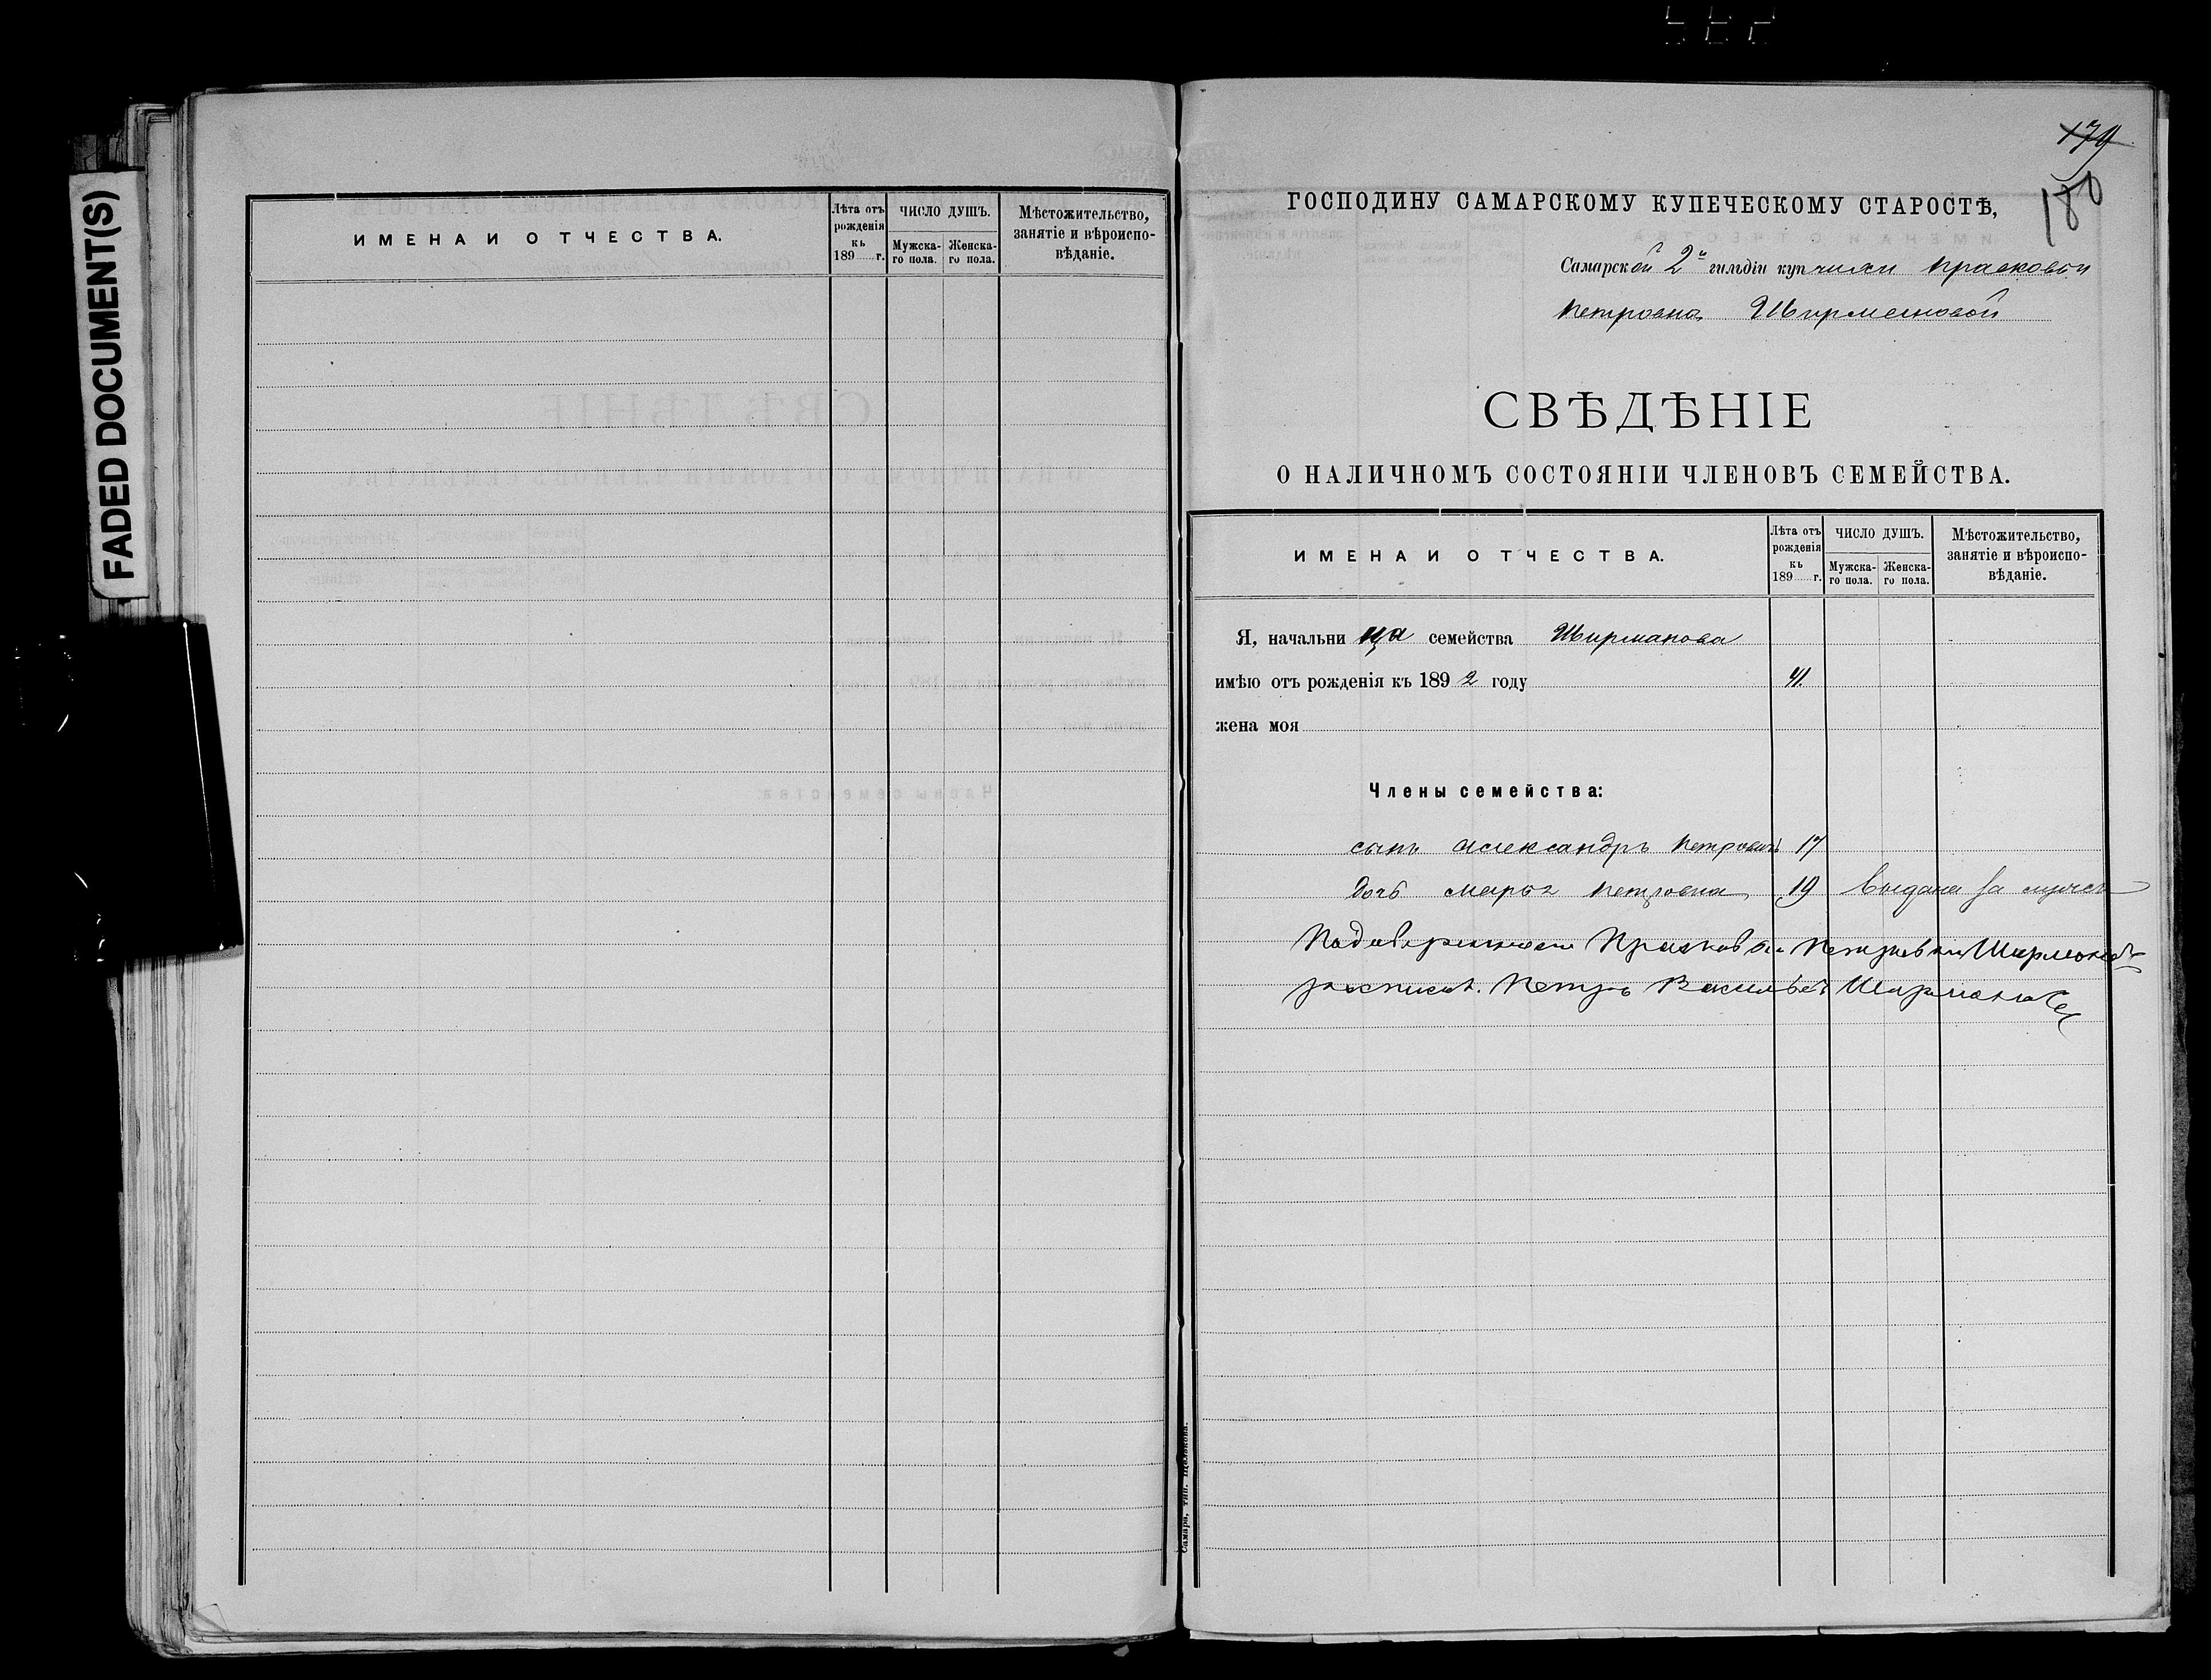 FADED DOCUMENT(S)
ИМЕНА И ОТЧЕСТВА.
Лѣта отъ рожденія къ 189 г.
ЧИСЛО ДУШЪ.
Мужска-го пола.
Женска-го пола.
Мѣстожительство, занятіе и вѣроиспо-вѣданіе.
179
180
ГОСПОДИНУ САМАРСКОМУ КУПЕЧЕСКОМУ СТАРОСТѢ,
Самарской 2й гильдіи купчихи Прасковьи
Петровна Ширмановой
СВѢДѢНІЕ
О НАЛИЧНОМЪ СОСТОЯНІИ ЧЛЕНОВЪ СЕМЕЙСТВА.
ИМЕНА И ОТЧЕСТВА.
Лѣта отъ рожденія къ 189 г.
ЧИСЛО ДУШЪ.
Мужска-го пола.
Женска-го пола.
Мѣстожительство, занятіе и вѣроиспо-вѣданіе.
Я, начальни ца семейства Ширманова
имѣю отъ рожденія къ 189 2 году 41.
жена моя
Члены семейства:
сынъ Александръ Петровичъ 17
дочь Марья Петровна 19 выдана за мужъ
Прасковьи Петровны
Петръ Васильевъ Ширмановъ
Самара, тип. Щелокова.